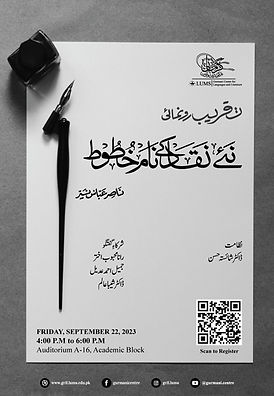 LUMS
تقریبِ رونمائی
نئے نقاد کے نام خطوط
ناصر عباس نیّر
نظامت
ڈاکٹر شائستہ حسن
شرکاء گفتگو
رانا محبوب اختر
جمیل احمد عدیل
ڈاکٹر ضیا عالم
FRIDAY, SEPTEMBER 22, 2023
4:00 P.M to 6:00 P.M
Auditorium A-16, Academic Block
Scan to Register
www.gcll.lums.edu.pk
gurmanicentre
gcll.lums
@gurmani.centre